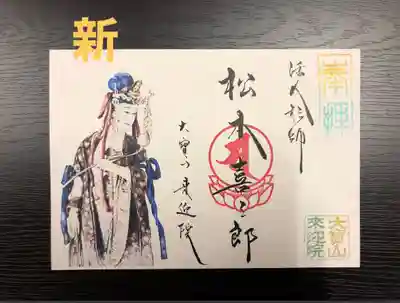 新
奉拝
活人形師
松本喜三郎
大寶山来迎院
大寶山
來迎院